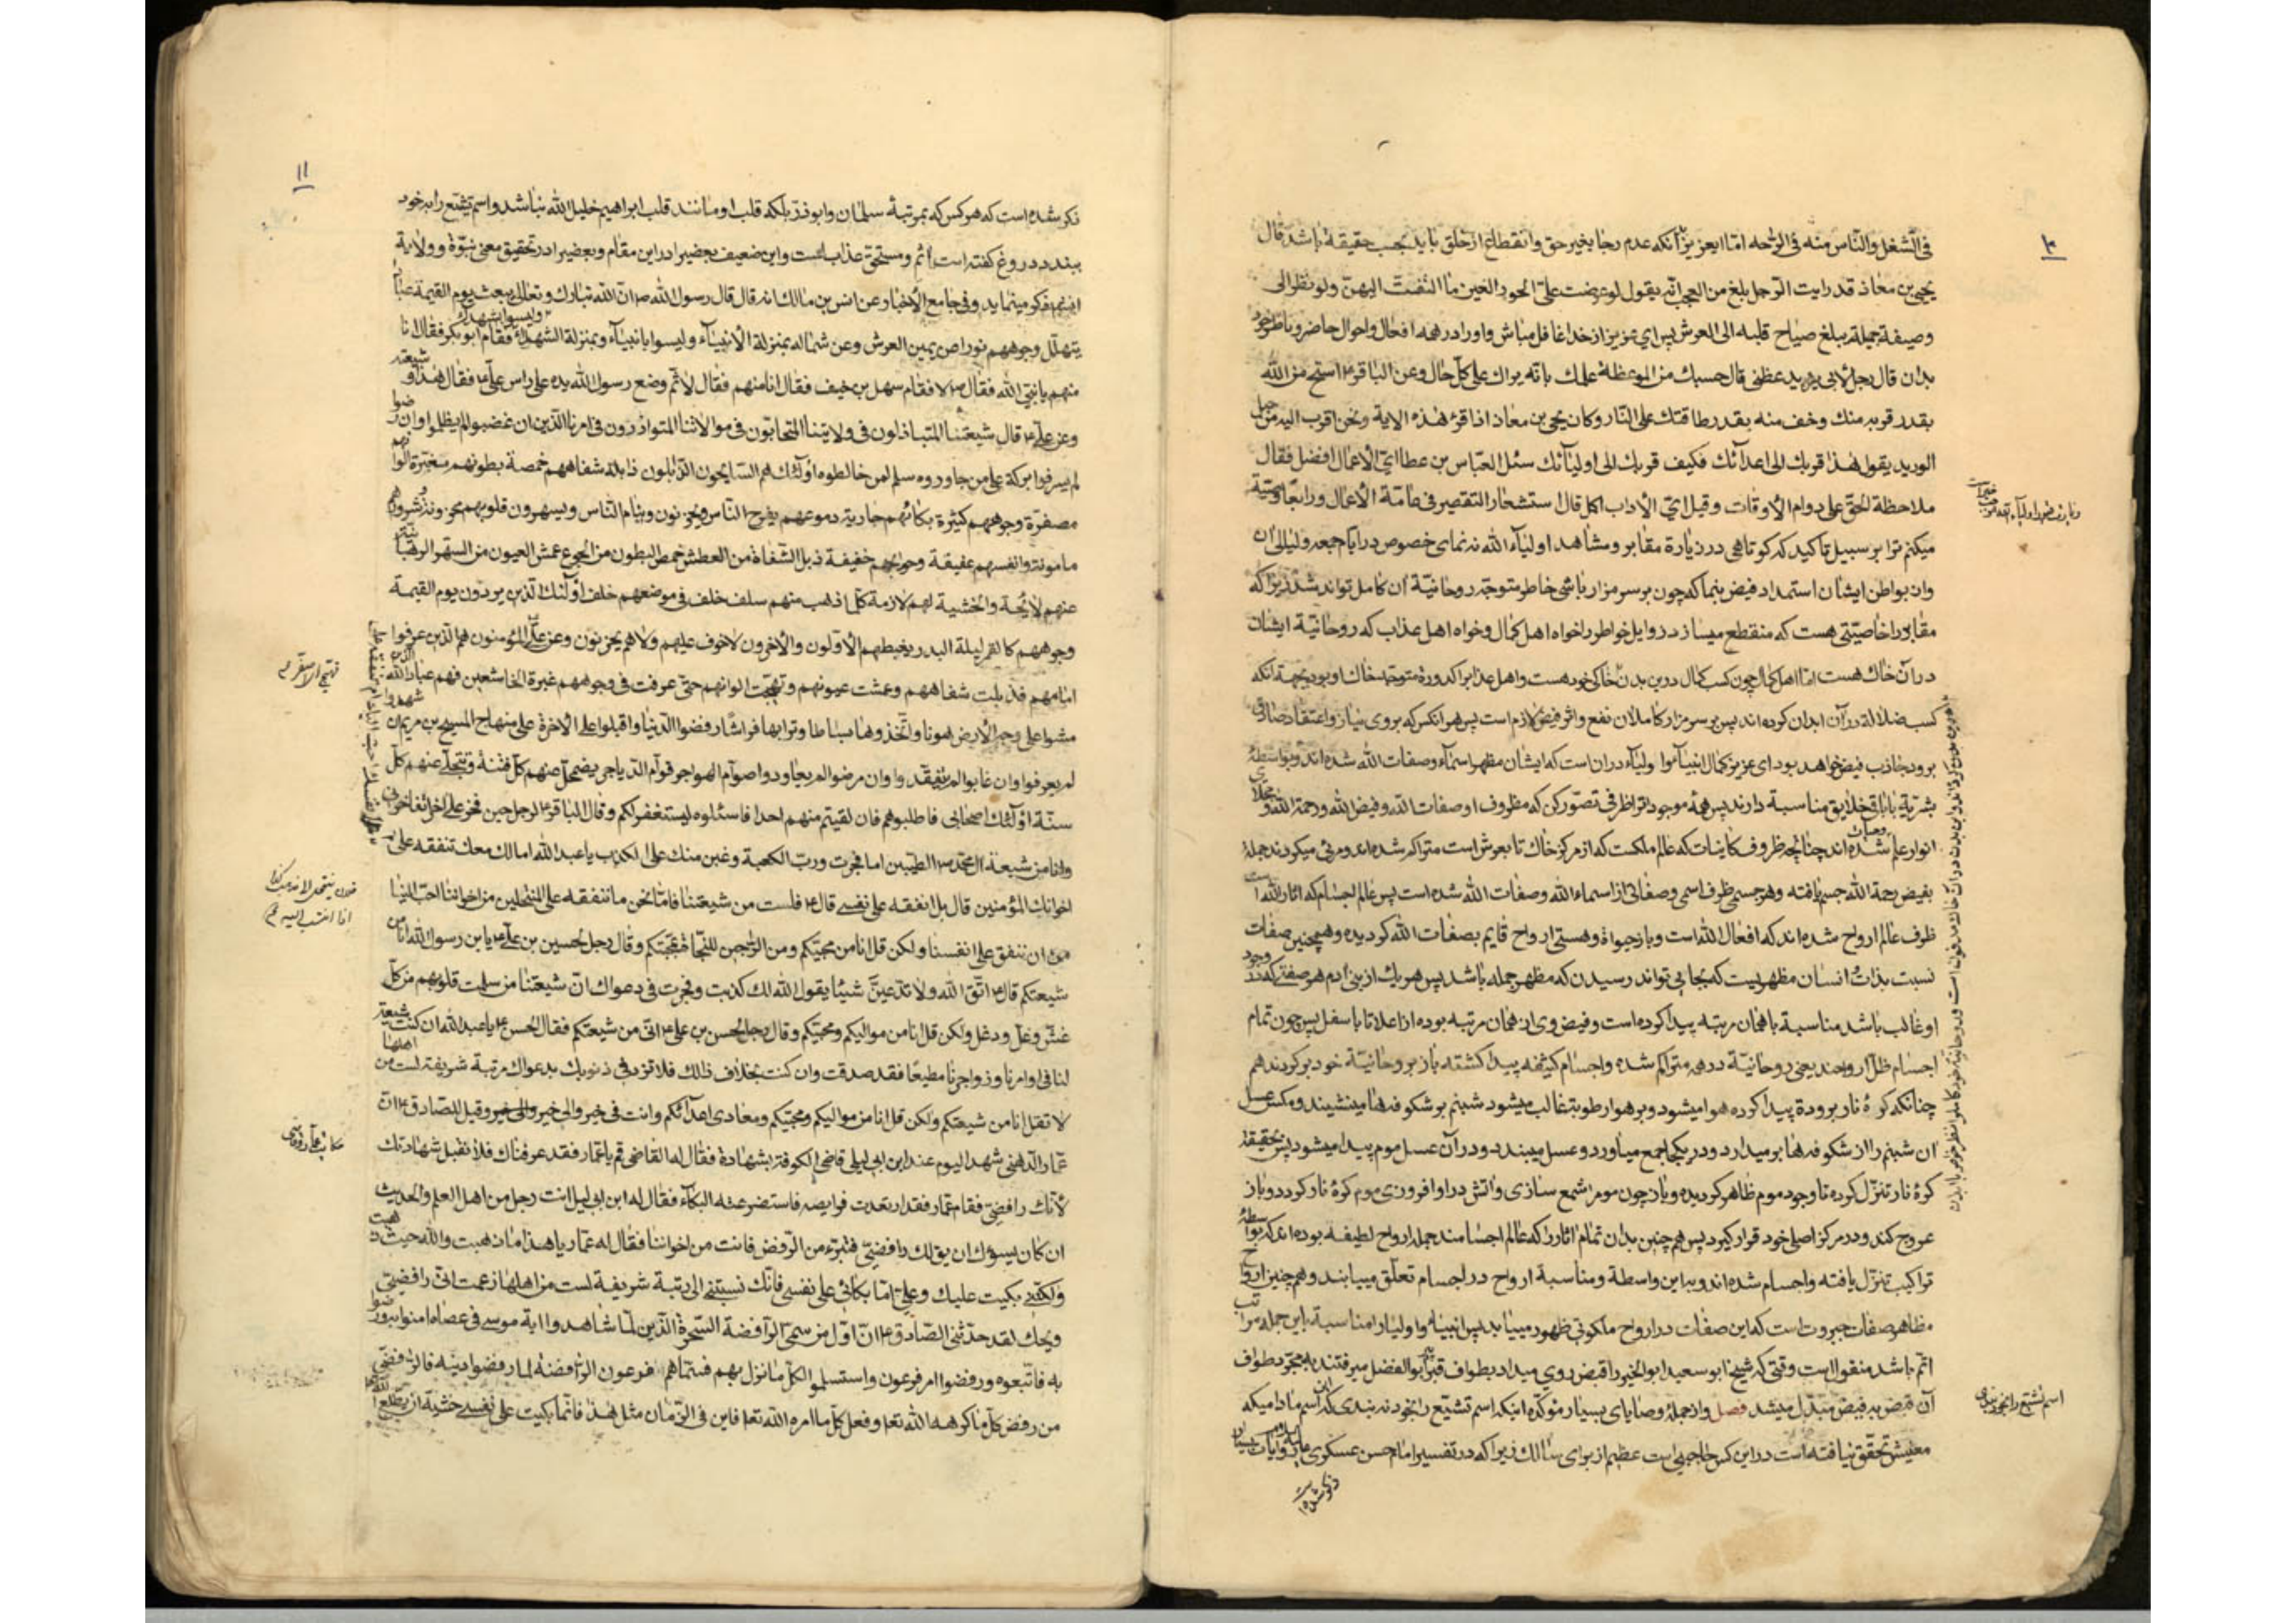 فی الشغل والناس منه فی الراحه امّا ایعزیز آنکه عدم رجا بغیر حق وانقطاع از خلق باید بحسب حقیقة باشد قال
یحیی بن معاذ قد رایت الرّجل بلغ من العجب انّه یقول لو عرضت علیّ الحور العین ما التفتّ الیهنّ ولو نظر الی
وصیفة جمیلة یبلغ صیاح قلبه الی العرش پس ای عزیز از خدا غافل مباش واو را در همه افعال واحوال حاضر وناظر خود
بدان قال رجل لابی یزید عظنی قال حسبك من الموعظة علمك بانّه یراك علی کلّ حال وعن الباقر ۴ استح من الله
بقدر قربه منك وخف منه بقدر طاقتك علی النّار وکان یحیی بن معاذ اذا قرئ هذه الایة ونحن اقرب الیه من حبل
الورید یقول هذا قربك الی اعدائك فکیف قربك الی اولیائك سئل العبّاس بن عطا ایّ الاعمال افضل فقال
ملاحظة الحقّ علی دوام الاوقات وقیل ایّ الاداب اکمل قال استشعار التقصیر فی عامّة الاعمال ورابعًا وصیّة
میکنم ترا بر سبیل تاکید که کوتاهی در زیارة مقابر ومشاهد اولیاء الله نه نمای خصوص در ایام جمعه ولیالی ان
وان بواطن ایشان استمداد فیض بنما که چون بر سر مزار باشی خاطر متوجّه روحانیّة ان کامل تواند شد زیرا که
مقابر را خاصیّتی هست که منقطع میسازد روایل خواطر را خواه اهل کمال وخواه اهل عذاب که روحانیّة ایشان
در آن خاك هست امّا اهل کمال چون کسب کمال درین بدن خاکی خود هست واهل عذابرا کدورة متوجّه خاك او بود بجهة انکه
کسب ضلالة در آن ابدان کرده اند پس بر سر مزار کاملان نفع واثر فیض لازم است پس هر انکس که بروی نیاز واعتقاد صادق
برود جاذب فیض خواهد بود ای عزیز کمال انبیاء واولیاء دران است که ایشان مظهر اسماء وصفات الله شده اند وبواسطهٔ
بشریّة با باقی خلایق مناسبة دارند پس همهٔ موجودات را ظرفی تصوّر کن که مظروف او صفات الله وفیض الله ورحمة الله و
انوار علم شده اند چنانچه ظروف کاینات که عالم ملکست که از مرکز خاك تا بعرش است متراکم شده اند ومرئی میکردند جملهٔ
بفیض رحمة الله جسم یافته وهر جسمی ظرف اسمی وصفاتی از اسماء الله وصفات الله شده است پس عالم اجسام که اثار الله است
ظرف عالم ارواح شده اند که افعال الله است وباز حیوة وهستی ارواح قایم بصفات الله کردیده وهمچنین صفات
نسبت بذات انسان مظهریست که بجایی تواند رسیدن که مظهر جمله باشد پس هر یك از بنی ادم هر صفتی که در وجود
او غالب باشد مناسبة با همان مرتبه پیدا کرده است وفیض وی از همان مرتبه بوده از اعلا تا باسفل پس چون تمام
اجسام ظلّ ارواحند یعنی روحانیّة درهم متراکم شده واجسام کثیفه پیدا کشته باز بروحانیّة خود بر کردند هم
چنانکه کرهٔ نار برودة پیدا کرده هوا میشود وبر هوا رطوبة غالب میشود شبنم بر شکوفها مینشیند ومکس عسل
ان شبنم را از شکوفها بر میدارد ودر یکجا جمع میآورد وعسل میبندد ودر آن عسل موم پیدا میشود پس حقیقة
کرهٔ نار تنزّل کرده تا وجود موم ظاهر کردیده وباز چون موم را شمع سازی واتش در او افروزی موم کرهٔ نار کردد وباز
عروج کند ودر مرکز اصلی خود قرار کیرد پس هم چنین بدان تمام اثار را که عالم اجسامند جمله ارواح لطیفه بوده اند که بواسطهٔ
تراکیب تنزّل یافته واجسام شده اند وبه این واسطة ومناسبة ارواح در اجسام تعلّق مییابند وهم چنین ارواح
مظاهر صفات جبروت است که این صفات در ارواح ملکوتی ظهور مییابد پس انبیاء واولیا را مناسبة باین جمله مراتب
اتم باشد منقول است وقتی که شیخ ابو سعید ابو الخیر را قبض روی میداد بطواف قبر پیر ابو الفضل میرفتند بمجرّد طواف
آن قبض به فیض مبدّل میشد فصل واز جملهٔ وصایای بسیار مؤکّده اینکه اسم تشیّع را بخود نه بندی که این اسم مادامیکه
معنیش تحقّق نیافته است در این کس حاجبی است عظیم از برای سالك زیرا که در تفسیر امام حسن عسکری علیه السلام وروایات بسیار
ذکر شده است
اسم تشیّع را بخود نبندی
۱۱
ذکر شده است که هر کس که بمرتبهٔ سلمان وابوذر بلکه قلب او مانند قلب ابراهیم خلیل الله نباشد واسم تشیّع را به خود
ببندد دروغ کفته است واثم ومستحقّ عذاب است واین ضعیف بعضیرا در این مقام وبعضیرا در تحقیق معنی نبوّة وولایة
ذکر مینماید وفی جامع الاخبار عن انس بن مالك انه قال قال رسول الله ص انّ الله تبارك وتعالی یبعث یوم القیمة عبادا
یتهلّل وجوههم نورا عن یمین العرش وعن شماله بمنزلة الانبیاء ولیسوا بانبیاء وبمنزلة الشهداء ولیسوا بشهداء فقام ابو بکر فقال انا
منهم یا نبیّ الله فقال لا فقام سهل بن حنیف فقال انا منهم فقال لا ثمّ وضع رسول الله یده علی راس علی ۴ فقال هذا وشیعته
وعن علی ۴ قال شیعتنا المتباذلون فی ولایتنا المتحابّون فی موالاتنا المتوازرون فی امرنا الّذین ان غضبوا لم یظلموا وان رضوا
لم یسرفوا برکة علی من جاوروه سلم لمن خالطوه اولئك هم السّایحون الذّابلون ذابلة شفاههم خمصة بطونهم متغیّرة الوانهم
مصفرّة وجوههم کثیرة بکائهم جاریة دموعهم یفرح النّاس ویحزنون وینام النّاس ویسهرون قلوبهم محزونة وشرورهم
مامونة وانفسهم عفیفة وحوایجهم خفیفة ذبل الشّفاة من العطش خمص البطون من الجوع عمش العیون من السّهر الرهبانیّة
عنهم لائحة والخشیة لهم لازمة کلّما ذهب منهم سلف خلف فی موضعهم خلف اولئك الّذین یردون یوم القیمة
وجوههم کالقمر لیلة البدر یغبطهم الاوّلون والاخرون لا خوف علیهم ولا هم یحزنون وعن علی المؤمنون هم الّذین عرفوا
امامهم فذبلت شفاههم وعمشت عیونهم وتهیّجت الوانهم حتّی عرفت فی وجوههم غبرة الخاشعین فهم عباد الله الّذین
مشوا علی وجه الارض هونا واتّخذوها بساطا وترابها فراشا رفضوا الدّنیا واقبلوا علی الاخرة علی منهاج المسیح بن مریم ان شهدوا
لم یعرفوا وان غابوا لم یفتقدوا وان مرضوا لم یعادوا صوّام الهواجر قوّام الدّیاجی یضمحلّ عنهم کلّ فتنة وتنجلی عنهم کلّ
سنة اولئك اصحابی فاطلبوهم فان لقیتم منهم احدا فاسئلوه لیستغفر لکم وقال الباقر ۴ لرجل حین فخر علی اخر اتفاخرنی
وانا من شیعة ال محمّد الطیّبین اما فخرت وربّ الکعبة وغبن منك علی الکذب یا عبد الله امالك معك تنفقه علی
اخوانك المؤمنین قال بل انفقه علی نفسی قال ۴ فلست من شیعتنا فانّا نحن ما ننفقه علی المنتحلین من اخواننا احبّ الینا
من ان ننفق علی انفسنا ولکن قل انا من محبّیکم ومن الرّاجین للنّجاة بمحبّتکم وقال رجل لحسین بن علی ۴ یا بن رسول الله انا من
شیعتکم قال ۴ اتّق الله ولا تدّعینّ شیئا یقول الله لك کذبت وفجرت فی دعواك انّ شیعتنا من سلمت قلوبهم من کلّ
غشّ وغلّ ودغل ولکن قل انا من موالیکم ومحبّیکم وقال رجل للحسن بن علی ۴ انّی من شیعتکم فقال الحسن ۴ یا عبد الله ان کنت
لنا فی اوامرنا وزواجرنا مطیعًا فقد صدقت وان کنت بخلاف ذالك فلا تزد فی ذنوبك بدعواك مرتبة شریفة لست من اهلها
لا تقل انا من شیعتکم ولکن قل انا من موالیکم ومحبّیکم ومعادی اعدائکم وانت فی خیر والی خیر وقیل للصّادق ۴ انّ
عمّار الدّهنی شهد الیوم عند ابن ابی لیلی قاضی الکوفة بشهادة فقال له القاضی قم یا عمّار فقد عرفناك فلا نقبل شهادتك
لانّك رافضیّ فقام عمّار فقد ارتعدت فرایصه فاستفرغته البکاء فقال له ابن ابی لیلی انت رجل من اهل العلم والحدیث
ان کان یسوؤك ان یق لك رافضیّ فتبرّء من الرّفض فانت من اخواننا فقال له عمّار یا هذا ما ذهبت والله حیث ذهبت
ولکنّی بکیت علیك وعلیّ امّا بکائی علی نفسی فانّك نسبتنی الی رتبة شریفة لست من اهلها زعمت انّی رافضیّ
ویحك لقد حدّثنی الصّادق ۴ انّ اوّل من سمّی الرّافضة السّحرة الّذین لمّا شاهدوا ایة موسی فی عصاه امنوا به ورضوا
به فاتّبعوه ورفضوا امر فرعون واستسلموا لکلّ ما نزل بهم فسمّاهم فرعون الرّافضة لما رفضوا دینه فالرّافضی
من رفض کلّ ما کرهه الله تعا وفعل کلّ ما امره الله تعا فاین فی الزّمان مثل هذا فانّما بکیت علی نفسی خشیة ان یطّلع الله